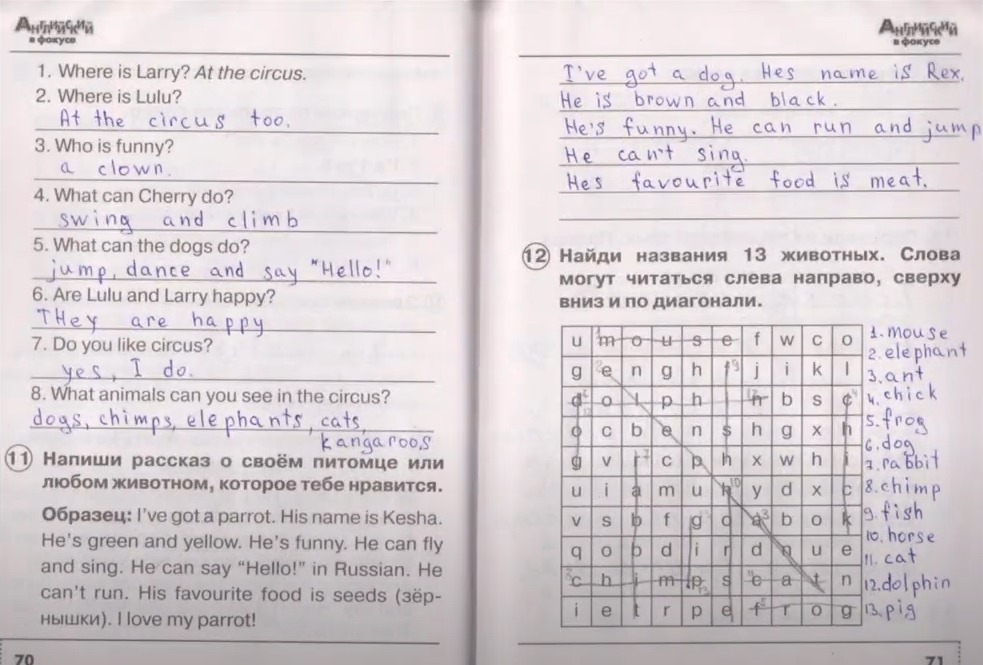 Английский
в фокусе
1. Where is Larry? At the circus.
2. Where is Lulu?
At the circus too.
3. Who is funny?
a clown.
4. What can Cherry do?
swing and climb
5. What can the dogs do?
jump, dance and say "Hello!"
6. Are Lulu and Larry happy?
THey are happy
7. Do you like circus?
yes, I do.
8. What animals can you see in the circus?
dogs, chimps, elephants, cats,
kangaroos
11 Напиши рассказ о своём питомце или
любом животном, которое тебе нравится.
Образец: I've got a parrot. His name is Kesha.
He's green and yellow. He's funny. He can fly
and sing. He can say "Hello!" in Russian. He
can't run. His favourite food is seeds (зёр-
нышки). I love my parrot!
70
Английский
в фокусе
I've got a dog. Hes name is Rex.
He is brown and black.
He's funny. He can run and jump
He can't sing.
Hes favourite food is meat.
12 Найди названия 13 животных. Слова
могут читаться слева направо, сверху
вниз и по диагонали.
u m o u s e f w c o
g e n g h f j i k l
d o l p h i n b s c
o c b e n s h g x h
g v r c p h x w h i
u i a m u h y d x c
v s b f g o a b o k
q o b d i r d n u e
c h i m p s c a t n
i e t r p e f r o g
1. mouse
2. elephant
3. ant
4. chick
5. frog
6. dog
7. rabbit
8. chimp
9. fish
10. horse
11. cat
12. dolphin
13. pig
71